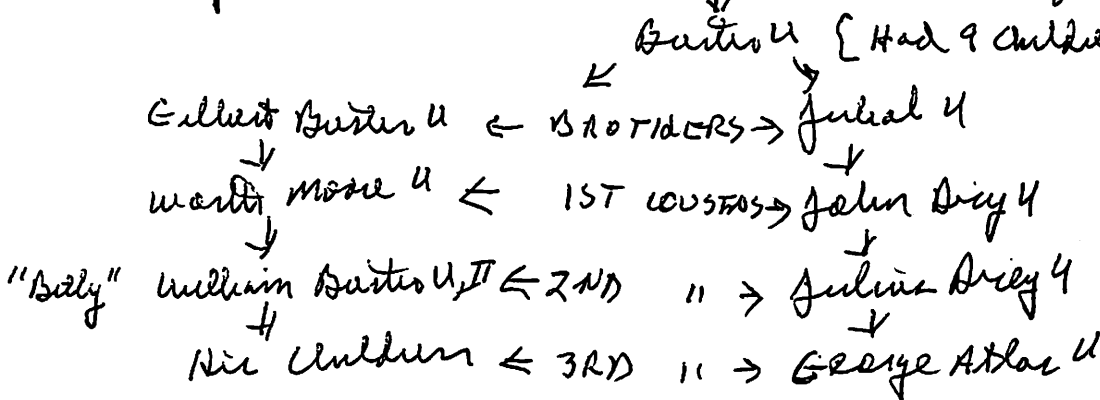 Buster U { Had 9 Children
Gilbert Buster U ← BROTHERS → Jubal U
Worth Moore U ← 1ST COUSINS → John Dicy U
"Billy" William Buster U, II ← 2ND " → Julius Dicy U
His Children ← 3RD " → George Atlas U